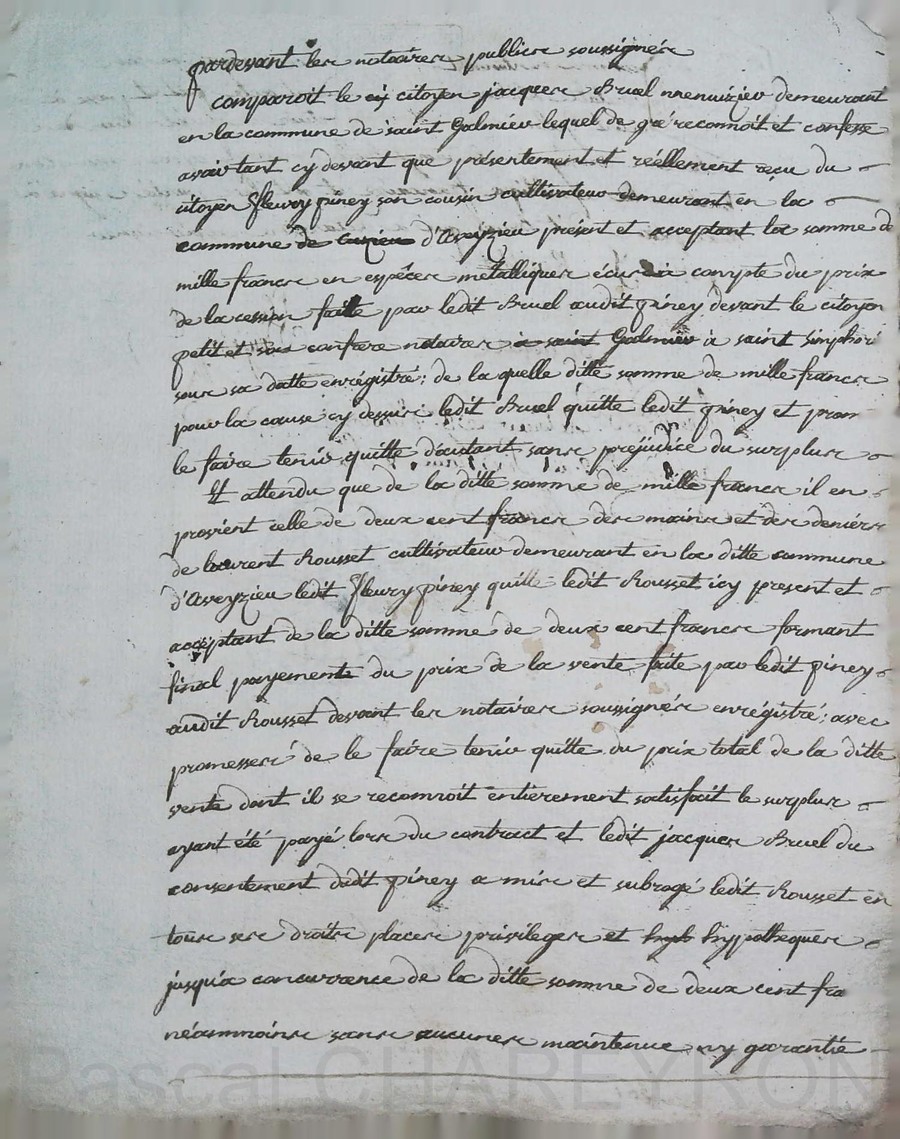 pardevant les notaires publics soussignés
comparoit le citoyen jacques Bruel menuizier demeurant
en la commune de saint Galmier lequel de gré reconnoit et confesse
avoir tant cy devant que présentement et réellement reçu du
citoyen fleury piney son cousin cultivateur demeurant en la
commune de cuzieu d'Aveyzieu présent et acceptant la somme de
mille francs en espèces métalliques écus à compte du prix
de la cession faitte par ledit Bruel audit piney devant le citoyen
petit et son confrere notaires à saint Galmier à saint simphori
sous sa datte enrégistré; de la quelle ditte somme de mille francs
pour la cause cy dessus ledit Bruel quitte ledit piney et prom
le faire tenir quitte d'autant sans préjudice du surplus
Et attendu que de la ditte somme de mille francs il en
provient celle de deux cent francs des mains et des deniers
de laurent Rousset cultivateur demeurant en la ditte commune
d'Aveyzieu ledit fleury piney quitte ledit Rousset icy present et
acceptant de la ditte somme de deux cent francs formant
final payement du prix de la vente faite par ledit piney
audit Rousset devant les notaires soussignés enrégistré; avec
promesses de le faire tenir quitte du prix total de la ditte
vente dont il se reconnoit entierement satisfait le surplus
ayant été payé lors du contract et ledit jacques Bruel du
consentement dudit piney a mis et subrogé ledit Rousset en
tous ses droits places privileges et hyp hypotheques
jusqu'a concurrance de la ditte somme de deux cent fra
néammoins sans aucunes maintenue ny garantie
Pascal CHAREYRON